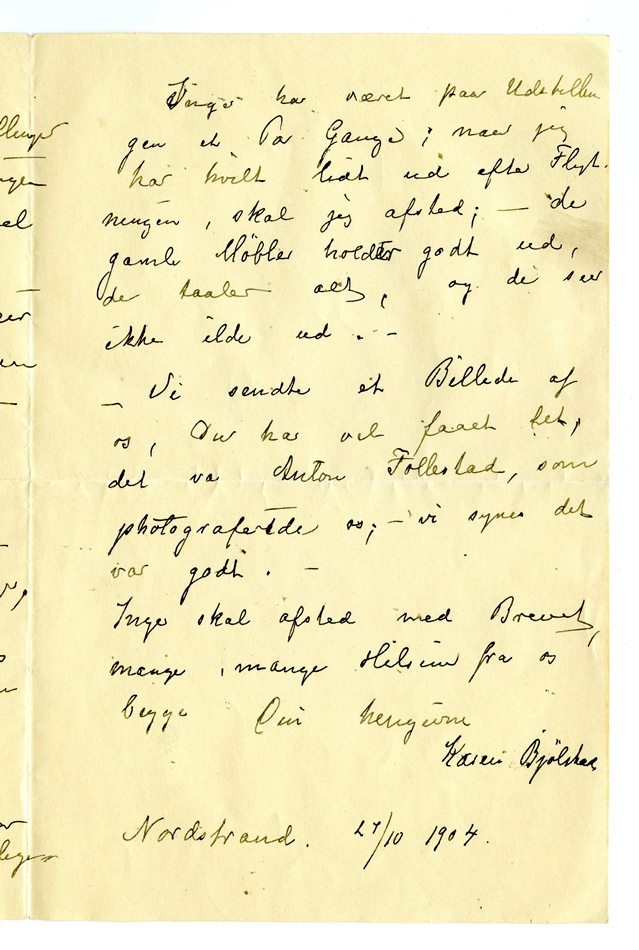 Inger har været paa Udstillin
gen et Par Gange; naar jeg
har hvilt lidt ud efter Flyt-
ningen, skal jeg afsted; — de
gamle Møbler holder godt ud,
de taaler alt, og de ser
ikke ilde ud. —
— Vi sendte et Billede af
os, Du har vel faaet det,
det va Anton Follestad, som
photograferede os; — vi synes det
var godt. —
Inger skal afsted med Brevet,
mange, mange Hilsener fra os
begge Din hengivne
Karen Bjölstad
Nordstrand. 27/10 1904.